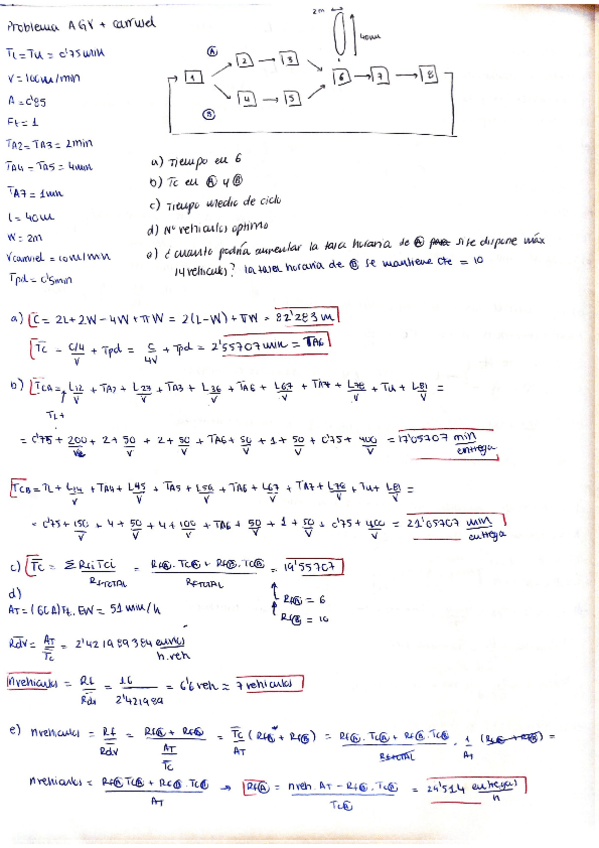 Problema AGV + carrusel
TL = Tu = 0'75 min
V = 100 m/min
A = 0'85
Ft = 1
TA2 = TA3 = 2min
TA4 = TA5 = 4min
TA7 = 1min
L = 40m
W = 2m
Vcarrusel = 10m/min
Tpd = 0'5min
2m
40m
A
B
1
2
3
4
5
6
7
8
a) Tiempo en 6
b) Tc en A y B
c) Tiempo medio de ciclo
d) Nº vehiculos optimo
e) ¿cuanto podría aumentar la tasa horaria de A si se dispone máx
14 vehiculos? la tasa horaria de B se mantiene cte = 10
a) C = 2L + 2W - 4W + πW = 2(L-W) + πW = 82'283 m
Tc = C/4 / V + Tpd = C / 4V + Tpd = 2'55707 min = TA6
b) TCA = L12/V + TA2 + L23/V + TA3 + L36/V + TA6 + L67/V + TA7 + L78/V + Tu + L81/V =
TL+
= 0'75 + 200/V + 2 + 50/V + 2 + 50/V + TA6 + 50/V + 1 + 50/V + 0'75 + 400/V = 17'05707 min/entrega
TCB = TL + L14/V + TA4 + L45/V + TA5 + L56/V + TA6 + L67/V + TA7 + L78/V + Tu + L81/V =
= 0'75 + 150/V + 4 + 50/V + 4 + 100/V + TA6 + 50/V + 1 + 50/V + 0'75 + 400/V = 21'05707 min/entrega
c) Tc = ΣRfi Tci / RfTOTAL = RfA · TcA + RfB · TcB / RfTOTAL = 19'55707
RfA = 6
RfB = 10
d)
AT = (60A) Ft · EW = 51 min/h
Rdv = AT / Tc = 2'421989384 / h.veh
nvehiculos = Rf / Rdv = 16 / 2'421989 = 6'6 veh ≈ 7 vehiculos
e) nvehiculos = Rf / Rdv = RfA + RfB / AT/Tc = Tc / AT (RfA + RfB) = RfA · TcA + RfB · TcB / RfTOTAL · 1/AT (RfA + RfB) =
nvehiculos = RfA TcA + RfB · TcB / AT → RfA = nveh · AT - RfB · TcB / TcA = 29'514 entregas/h